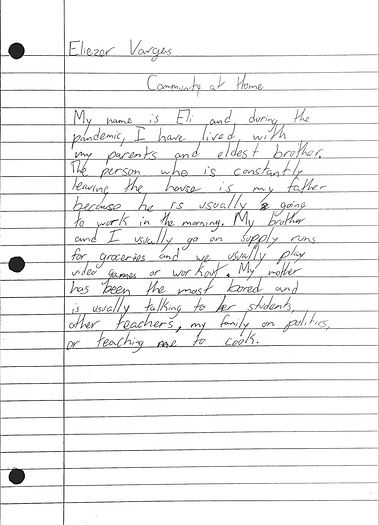 Eliezer Vargas
Community at Home
My name is Eli and during the
pandemic, I have lived with
my parents and eldest brother.
The person who is constantly
leaving the house is my father
because he is usually going
to work in the morning. My brother
and I usually go on supply runs
for groceries and we usually play
video games or workout. My mother
has been the most bored and
is usually talking to her students,
other teachers, my family on politics,
or teaching me to cook.